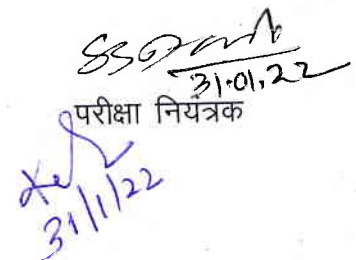 31.01.22
परीक्षा नियंत्रक
31/1/22